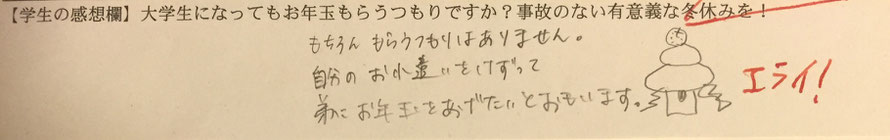 【学生の感想欄】大学生になってもお年玉もらうつもりですか？事故のない有意義な冬休みを！
もちろん もらうつもりはありません。
自分の お小遣いをけずって
弟に お年玉をあげたいとおもいます。
エライ！